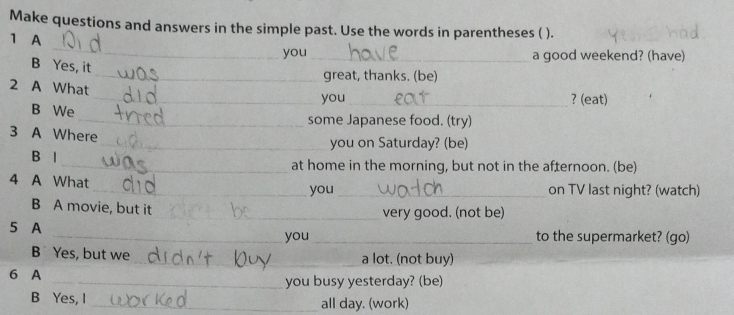 Make questions and answers in the simple past. Use the words in parentheses ( ).
1 A Did you have a good weekend? (have)
B Yes, it was great, thanks. (be)
2 A What did you eat ? (eat)
B We tried some Japanese food. (try)
3 A Where you on Saturday? (be)
B I was at home in the morning, but not in the afternoon. (be)
4 A What did you watch on TV last night? (watch)
B A movie, but it be very good. (not be)
5 A you to the supermarket? (go)
B Yes, but we didn't buy a lot. (not buy)
6 A you busy yesterday? (be)
B Yes, I worked all day. (work)